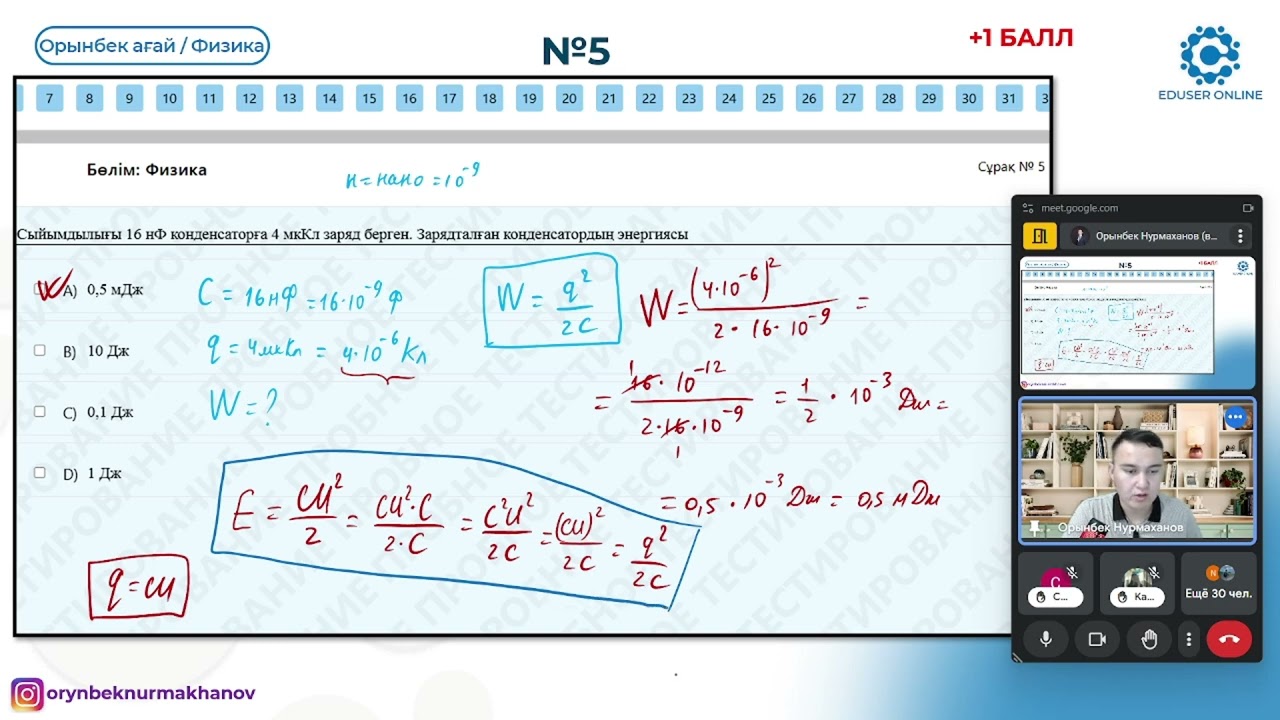 Орынбек ағай / Физика
№5
+1 БАЛЛ
EDUSER ONLINE
7 8 9 10 11 12 13 14 15 16 17 18 19 20 21 22 23 24 25 26 27 28 29 30 31 3
Бөлім: Физика
н = нано = 10⁻⁹
Сұрақ № 5
Сыйымдылығы 16 нФ конденсаторға 4 мкКл заряд берген. Зарядталған конденсатордың энергиясы
A) 0,5 мДж
B) 10 Дж
C) 0,1 Дж
D) 1 Дж
C = 16нФ = 16·10⁻⁹ Ф
q = 4мкКл = 4·10⁻⁶ Кл
W = ?
W = q²/2C
W = (4·10⁻⁶)²/2·16·10⁻⁹ =
= 1 16·10⁻¹²/2·16·10⁻⁹ 1 = 1/2 · 10⁻³ Дж =
= 0,5·10⁻³ Дж = 0,5 мДж
E = CU²/2 = CU²·C/2·C = C²U²/2C = (CU)²/2C = q²/2C
q = CU
meet.google.com
Орынбек Нурмаханов (в...
Орынбек Нурмаханов
С
С...
Ка...
Н
Ещё 30 чел.
orynbeknurmakhanov